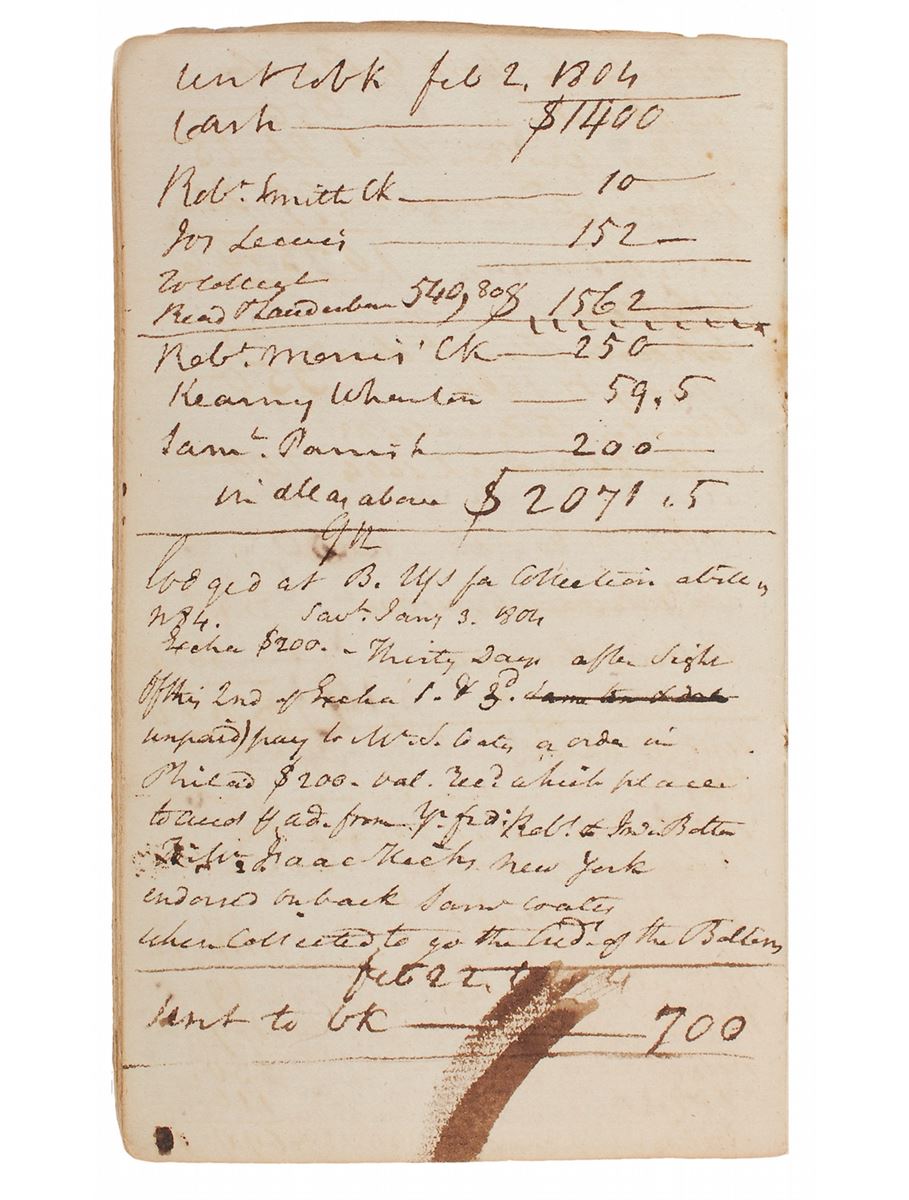 Sent to bk feb 2. 1804
Cash $1400
Robt. Smith Ck 10
Jos Lewis 152
To Collect
Read 540,808 $ 1562
Robt. Morris' Ck 250
Kearny Wharton 59.5
Saml. Parrish 200
in all as above $2071.5
lodged at B. U.S for Collection
No 4. Savh. Jany 3. 1804
Excha $200. Thirty Days after Sight
Of this 2nd of Excha 1. & 3d.
unpaid) pay to Mr. S. Coates or order in
Philad $200. val. Recd which place
to acct as ad. from Yr fds: Robt. & Jno Bolton
To Mr. Isaac Hicks New York
endorsed on back Saml Coates
when Collected to go the Credt. of the Boltons
feb 22.
Sent to bk 700